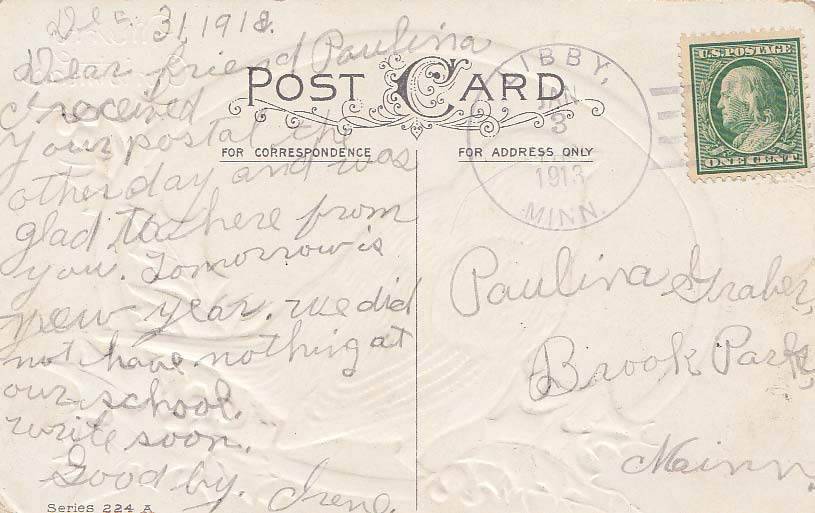 Dec. 31, 1912.
Dear friend Paulina
I received
your postal the
other day and was
glad to here from
you. Tomorrow is
new year. we did
not have nothing at
our school.
write soon.
Good by. Irene.
Series 224 A
POST CARD
FOR CORRESPONDENCE
FOR ADDRESS ONLY
LIBBY,
JAN
3
1913
MINN.
U.S. POSTAGE
ONE CENT
Paulina Graber,
Brook Park,
Minn.